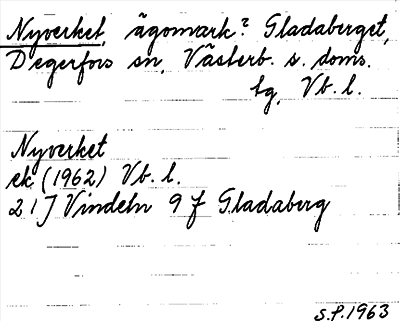 Nyverket, ägomark? Gladaberget,
Degerfors sn, Västerb. s. doms.
lg, Vb. l.
Nyverket
ek (1962) Vb. l.
21 J Vindeln 9 f Gladaberg
S.P. 1963